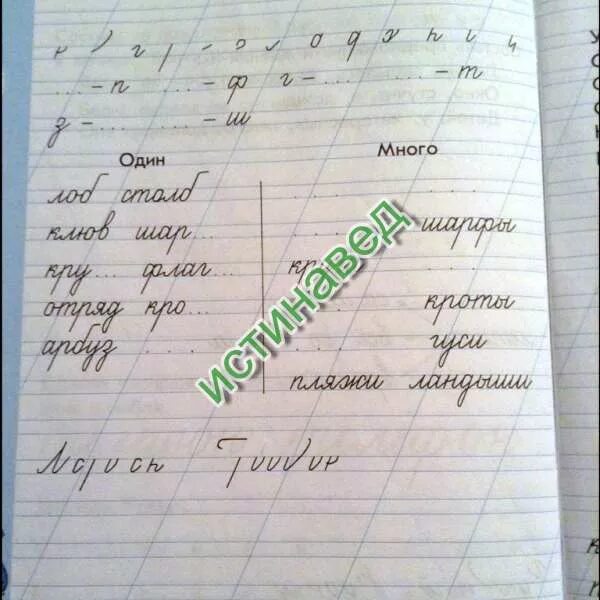 ...-п ...-ф г-... ...-т
з-... ...-ш
Один Много
лоб столб ... ...
клюв шар... ... шарфы
кру... флаг... кр... ...
отряд кро... ... кроты
арбуз ... ... гуси
пляжи ландыши
истинавед